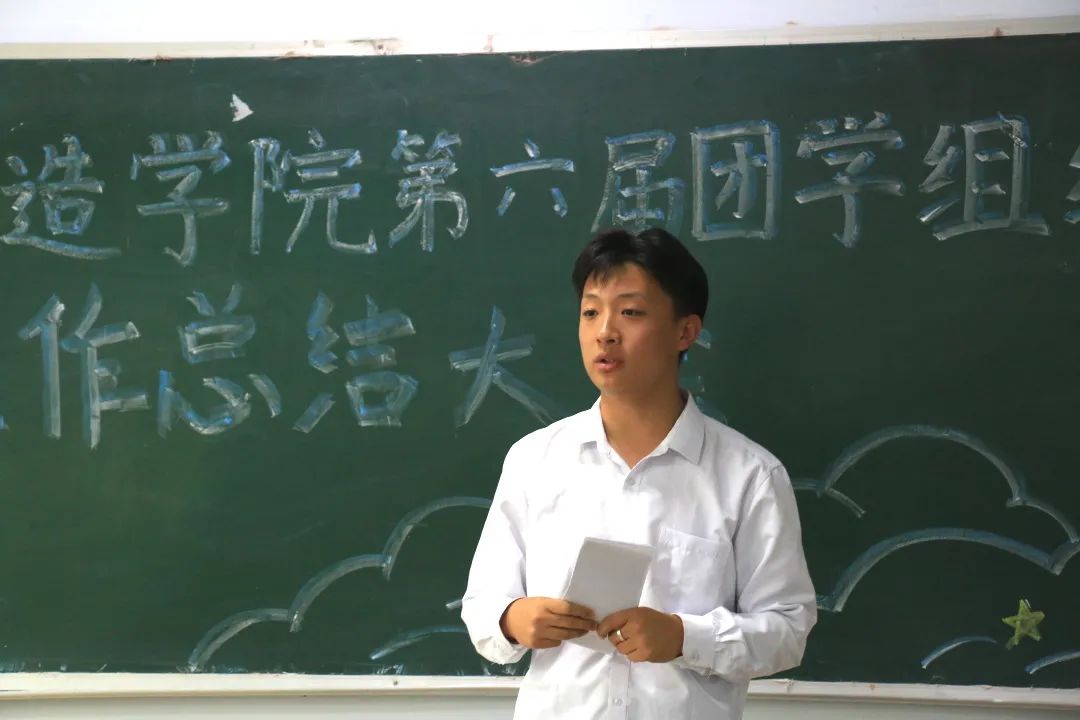 造学院第六届团学组
作总结大